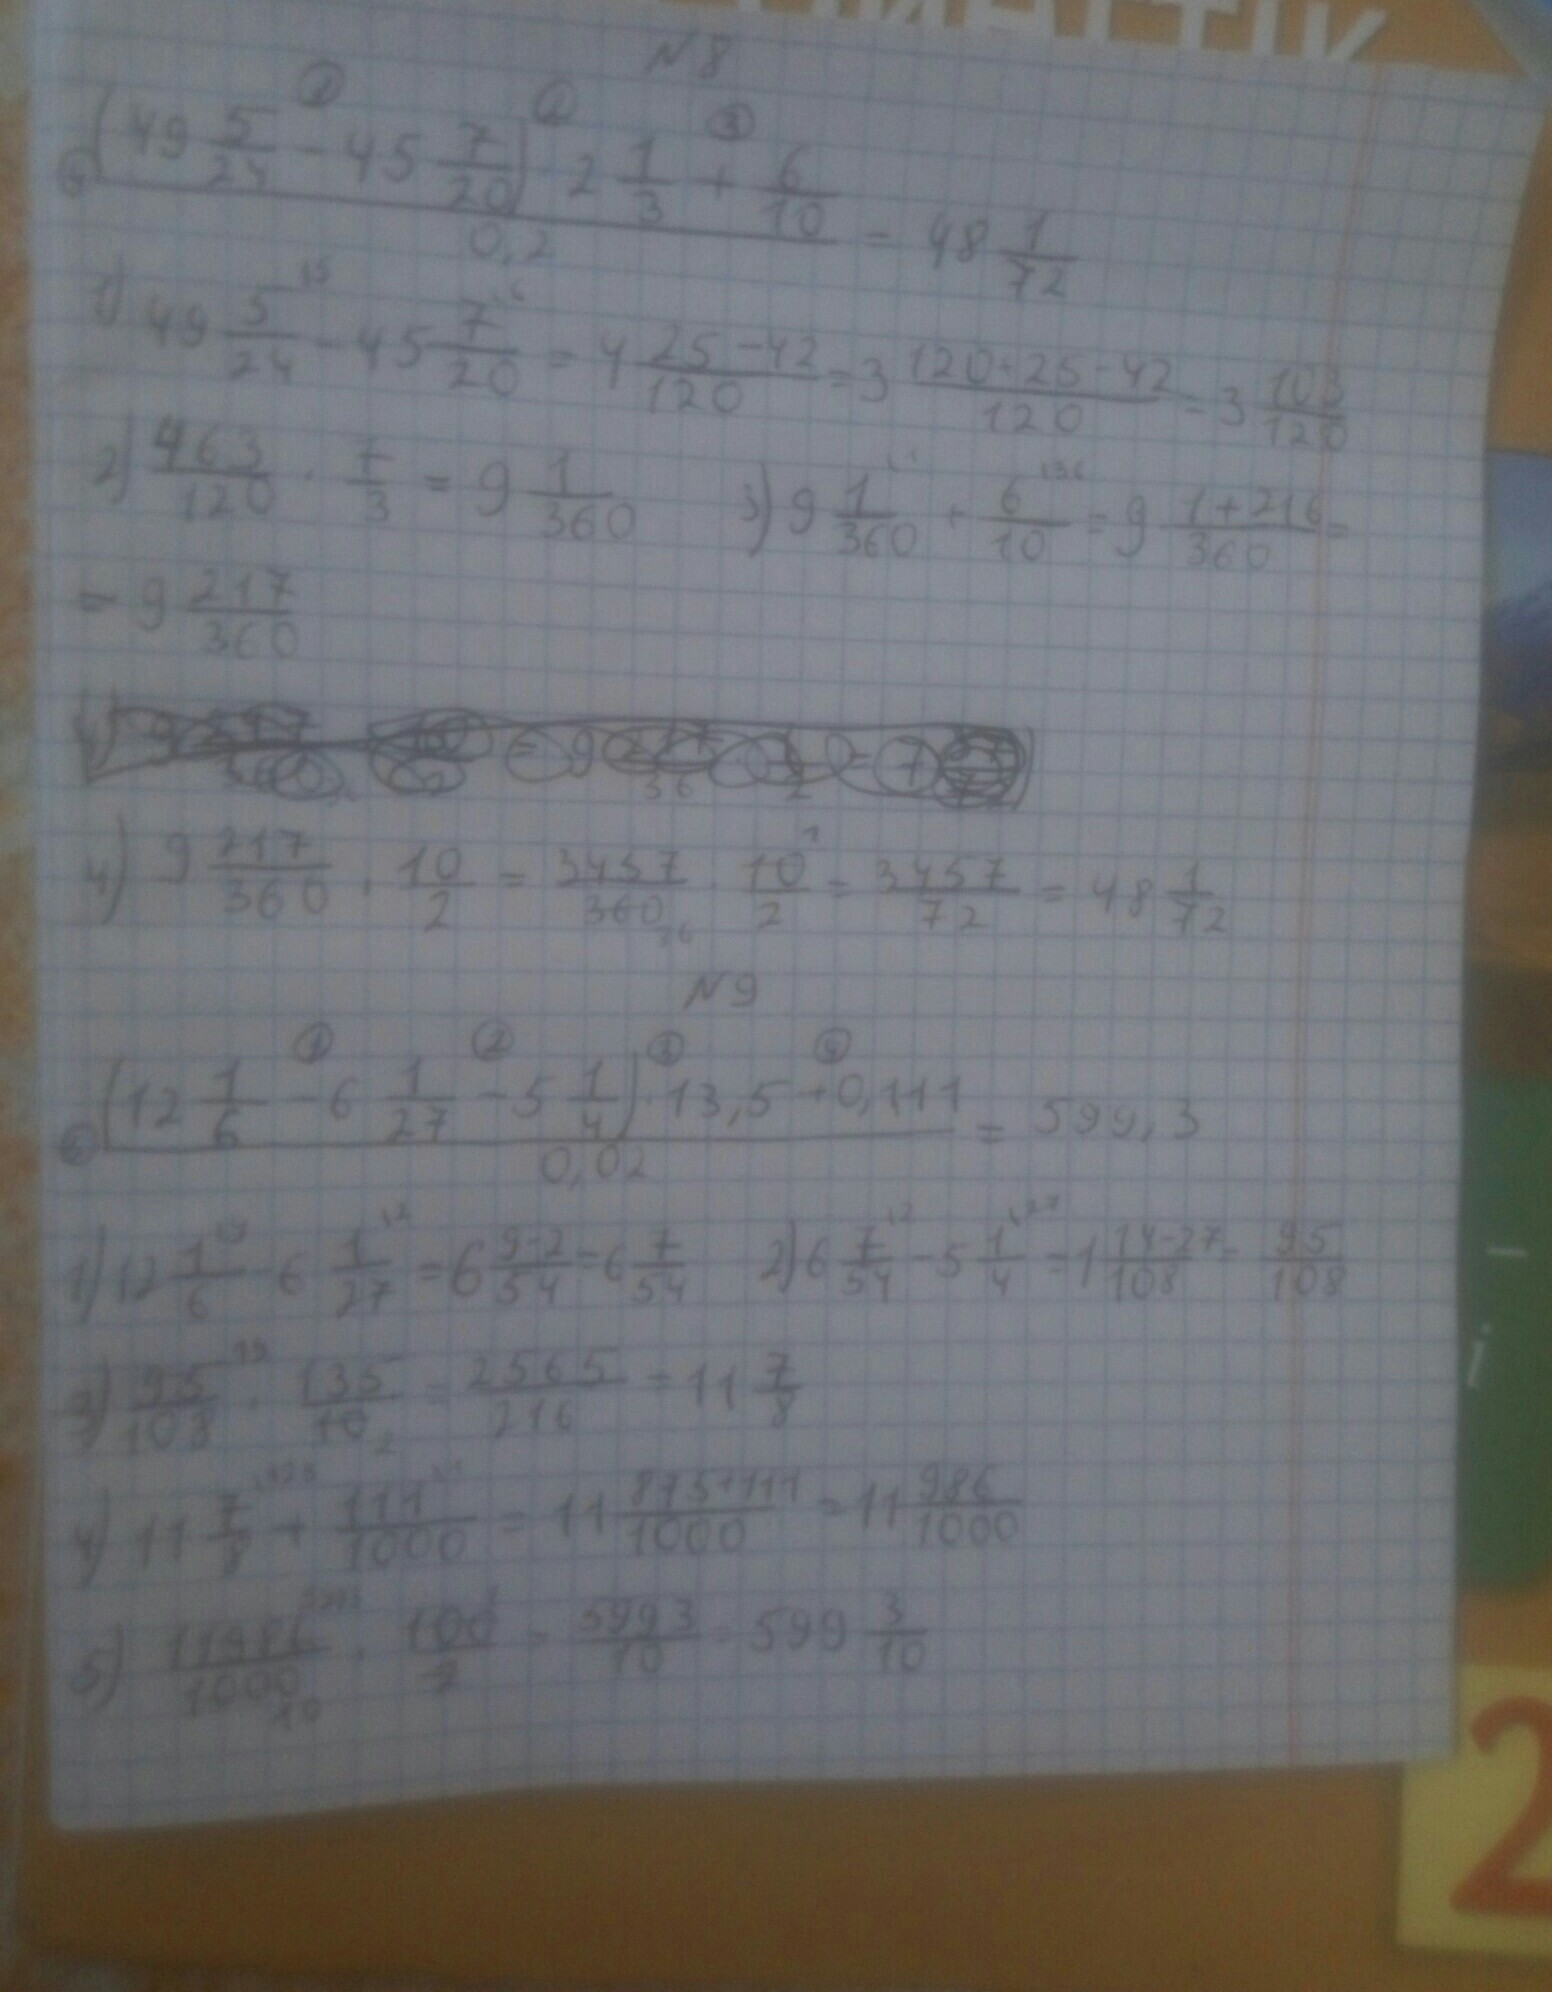 №8
((49 5/24 - 45 7/20) 2 1/3 + 6/10) / 0,2 = 48 1/72
1) 49 5/24 - 45 7/20 = 4 (25-42)/120 = 3 (120+25-42)/120 = 3 103/120
2) 463/120 · 7/3 = 9 1/360 3) 9 1/360 + 6/10 = 9 (1+216)/360 =
= 9 217/360
4) 9 217/360 · 10/2 = 3457/360 · 10/2 = 3457/72 = 48 1/72
№9
((12 1/6 - 6 1/27 - 5 1/4) · 13,5 + 0,111) / 0,02 = 599,3
1) 12 1/6 - 6 1/27 = 6 (9-2)/54 = 6 7/54 2) 6 7/54 - 5 1/4 = 1 (14-27)/108 = 95/108
3) 95/108 · 135/10 = 2565/216 = 11 7/8
4) 11 7/8 + 111/1000 = 11 (875+111)/1000 = 11 986/1000
5) 11986/1000 · 100/2 = 5993/10 = 599 3/10
2